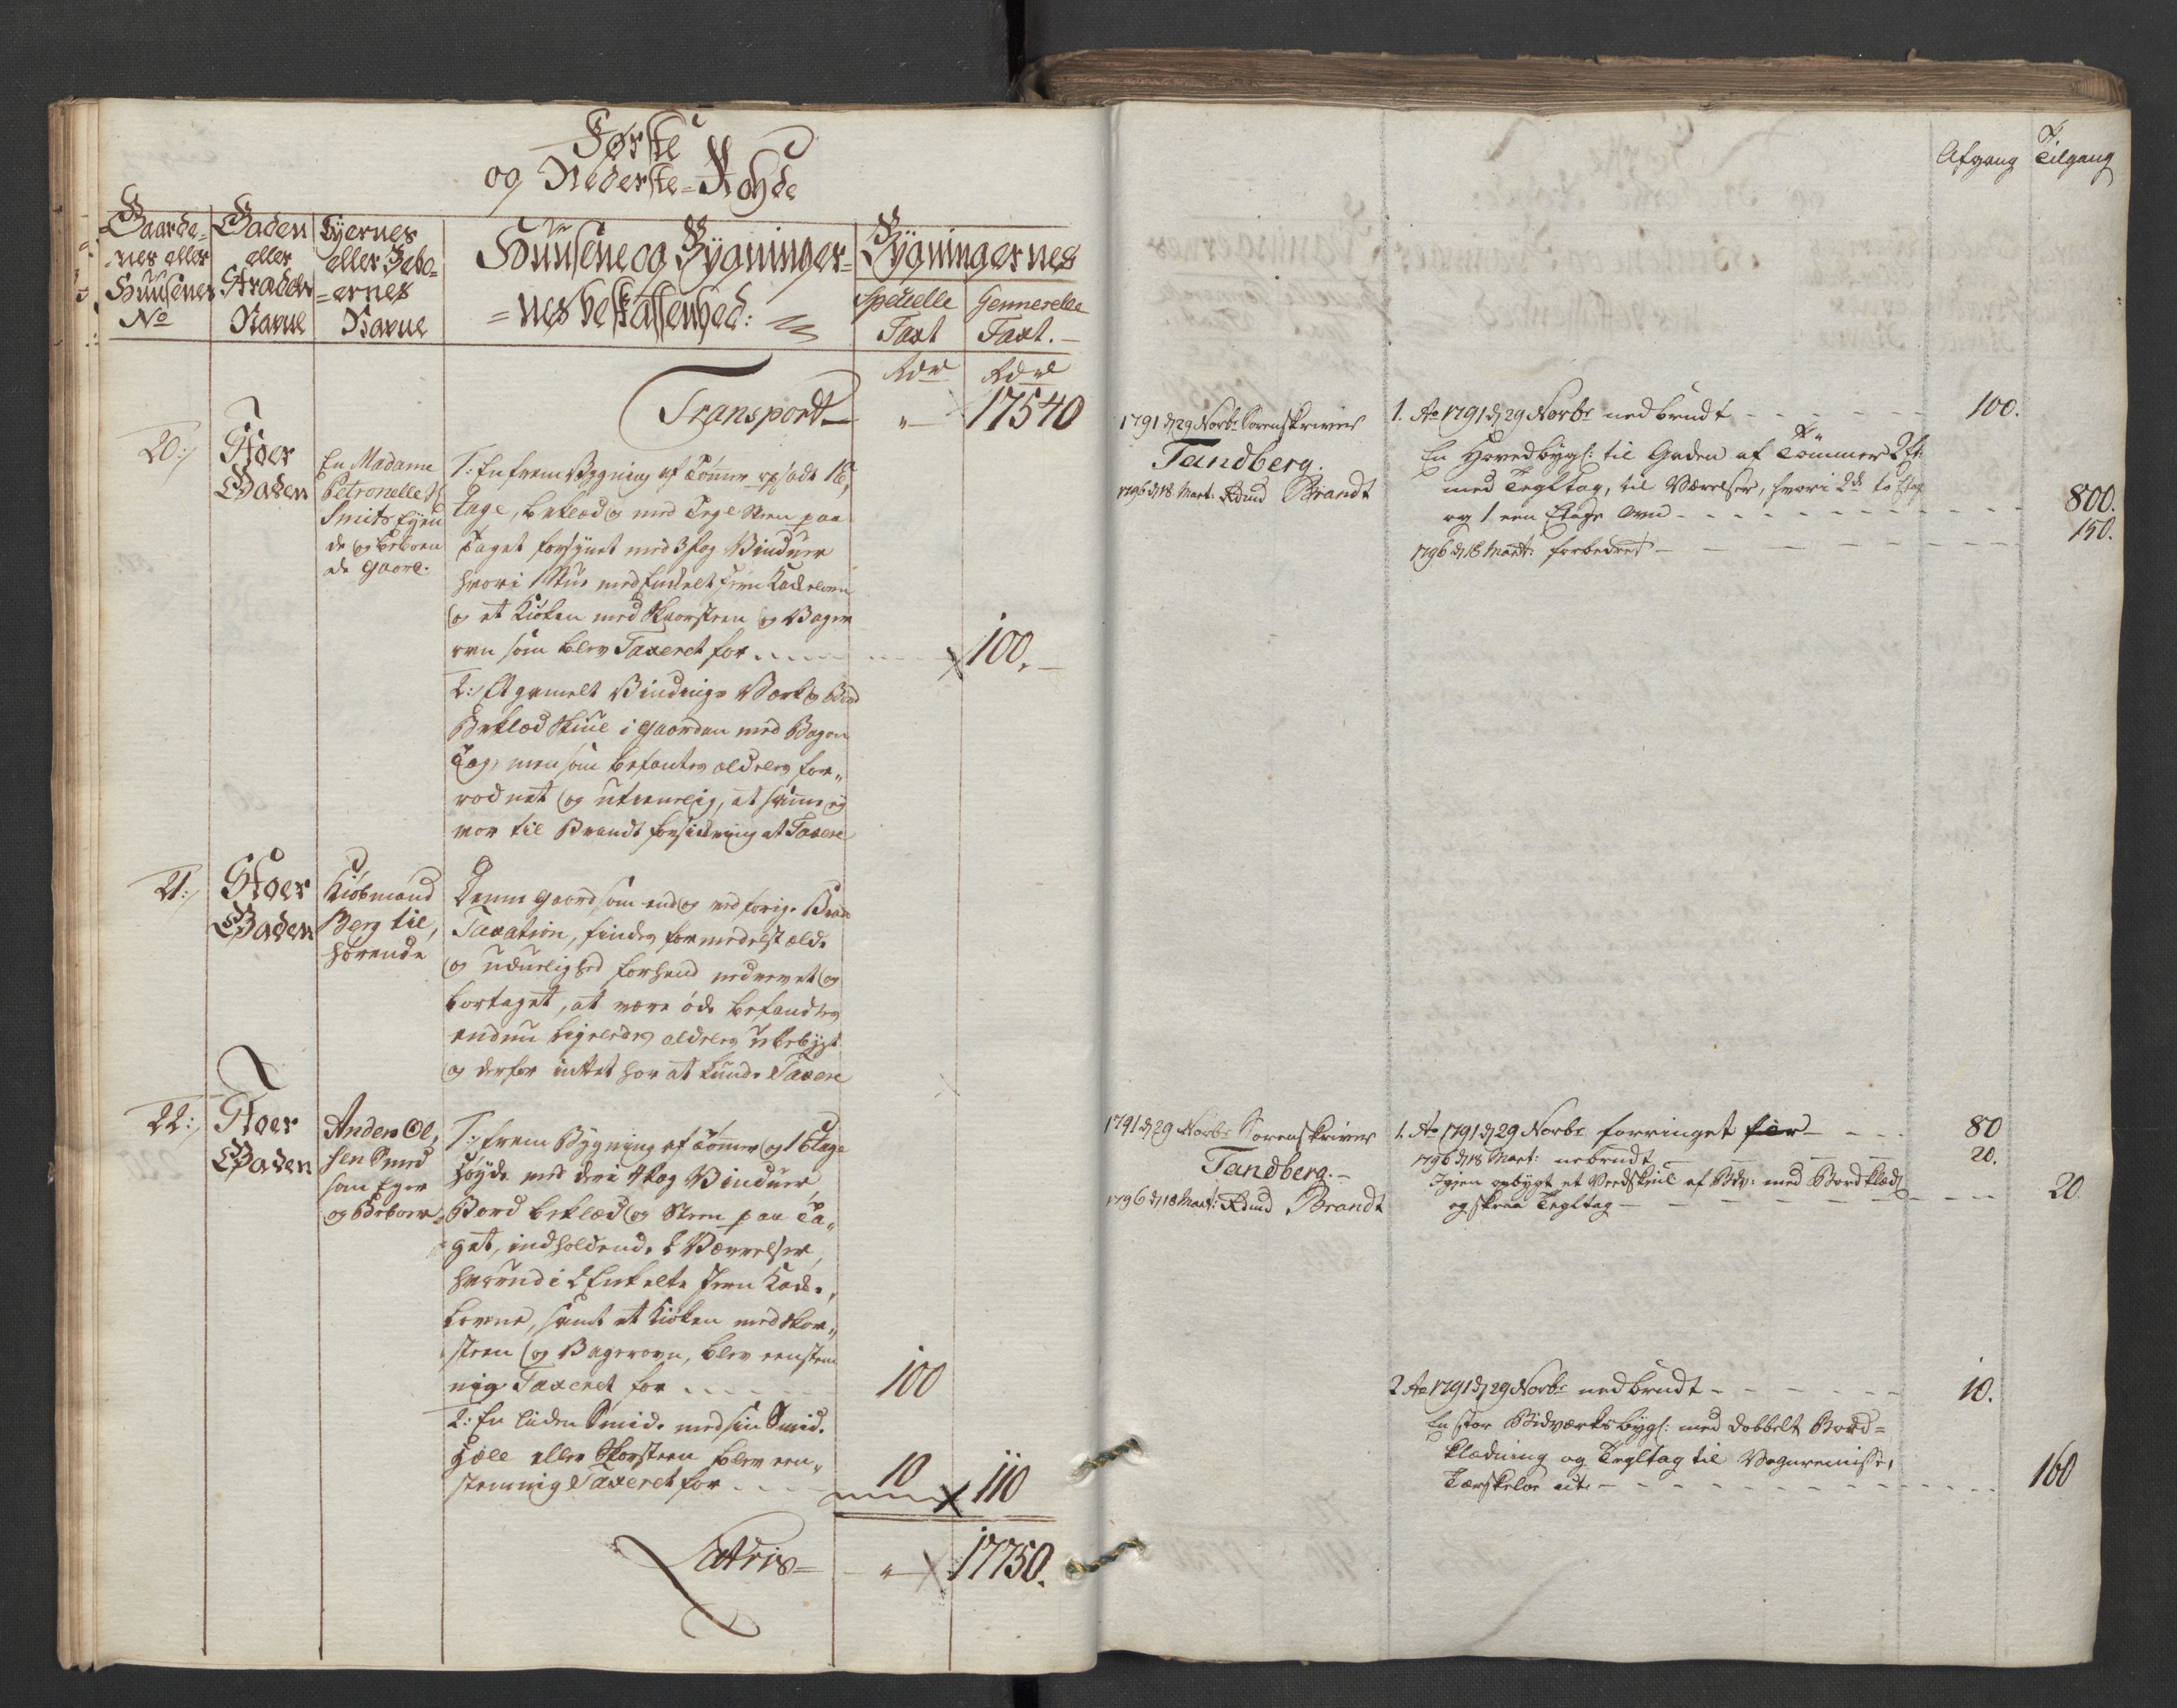 Første
og Nederste=Royde
Gaarde=
nes eller
Huusenes
No
Gaden
eller
Strædets
Navne
Eyernes
eller Bebo=
=ernes
Navne
Huusene og Bygninger=
=nes beskaffenhed:
Bygningernes
Specielle
Taxt
Gennerelle
Taxt.
Rdr
Rdr
Transport
"
17540
20:/
Stoer
Gaden
En Madame
Petronelle S
Smits Eyen
de og beboen
de gaard.
1: En frem Bygning af Tømmer opsadt 1 E
tage, beklæd og med Tegl Steen paa
Taget forsynet med 3 fag Vinduer
hvori 1 Stue med Enkelt Jern Kackelovn
og et Kiøken med Skorsteen og Bager
ovn som blev Taxeret for
100.
2: Et gamelt Bindings Værk og Bord
Beklæd Skiul i Gaarden med
Tag, men som befantes aldeles for,,
rodnet og utienelig, at samme ey
var til Brandt forsickring at Taxere
21:/
Stoer
Gaden
Kiøbmand
Berg til,
hørende
Denne gaard, som endog ved forige Brand
Taxation, findes formedelst ælde
og uduelighed forhen nedrevet og
bortaget, at være øde befandtes
endnu ligeledes aldeles ubebygt
og derfor intet her at kunde Taxere
22:/
Stoer
Gaden
Anders Ol,
sen Smed
som Eyer
og Beboer
1:, frem Bygning af Tømmer og 1 Etage
Høyde med deri 4 fag Vinduer
Bord beklæd og Steen paa Ta,,
get, indholdende 2 Værrelser,
hvorudi 2 Enkelte Jern Kacke,
lovne, samt et Kiøken med Skor,,
steen og Bagerovn, blev eenstem
nig Taxeret for
100
2: En liden Smide med sin Smid
Hælle eller Skorsteen blev een,,
stemmig Taxeret for
10
110
Latris=
"
17750.
Afgang
Tilgang
1791 d 29 Novbr Sorenskriver
Tandberg.
1796 d 18 Mart: Amund Brandt
1. Ao 1791 d 29 Novbr nedbrudt
100.
En Hovedbygn: til Gaden af Tømmer 2 Et:
med Tegltag, til Værelser, hvori 2de to Etag
og 1 een Etages Ovn
800.
1796 d 18 Mart: forbedret
150.
1791 d 29 Novbr Sorenskriver
Tandberg.
1796 d 18 Mart: Amund Brandt
1. Ao 1791 d 29 Novbr forringet for
80
1796 d 18 Mart: nebrudt
20.
Igjen opbygt et Vedskiul af Bdv: med Bordklæd:
og skraa Tegltag
20.
2 Ao 1791 d 29 Novbr nedbrudt
10.
En stor Bidværksbygn: med dobbelt Bord=
klædning og Tegltag til Vognremisse,
Tærskeloe etc
160